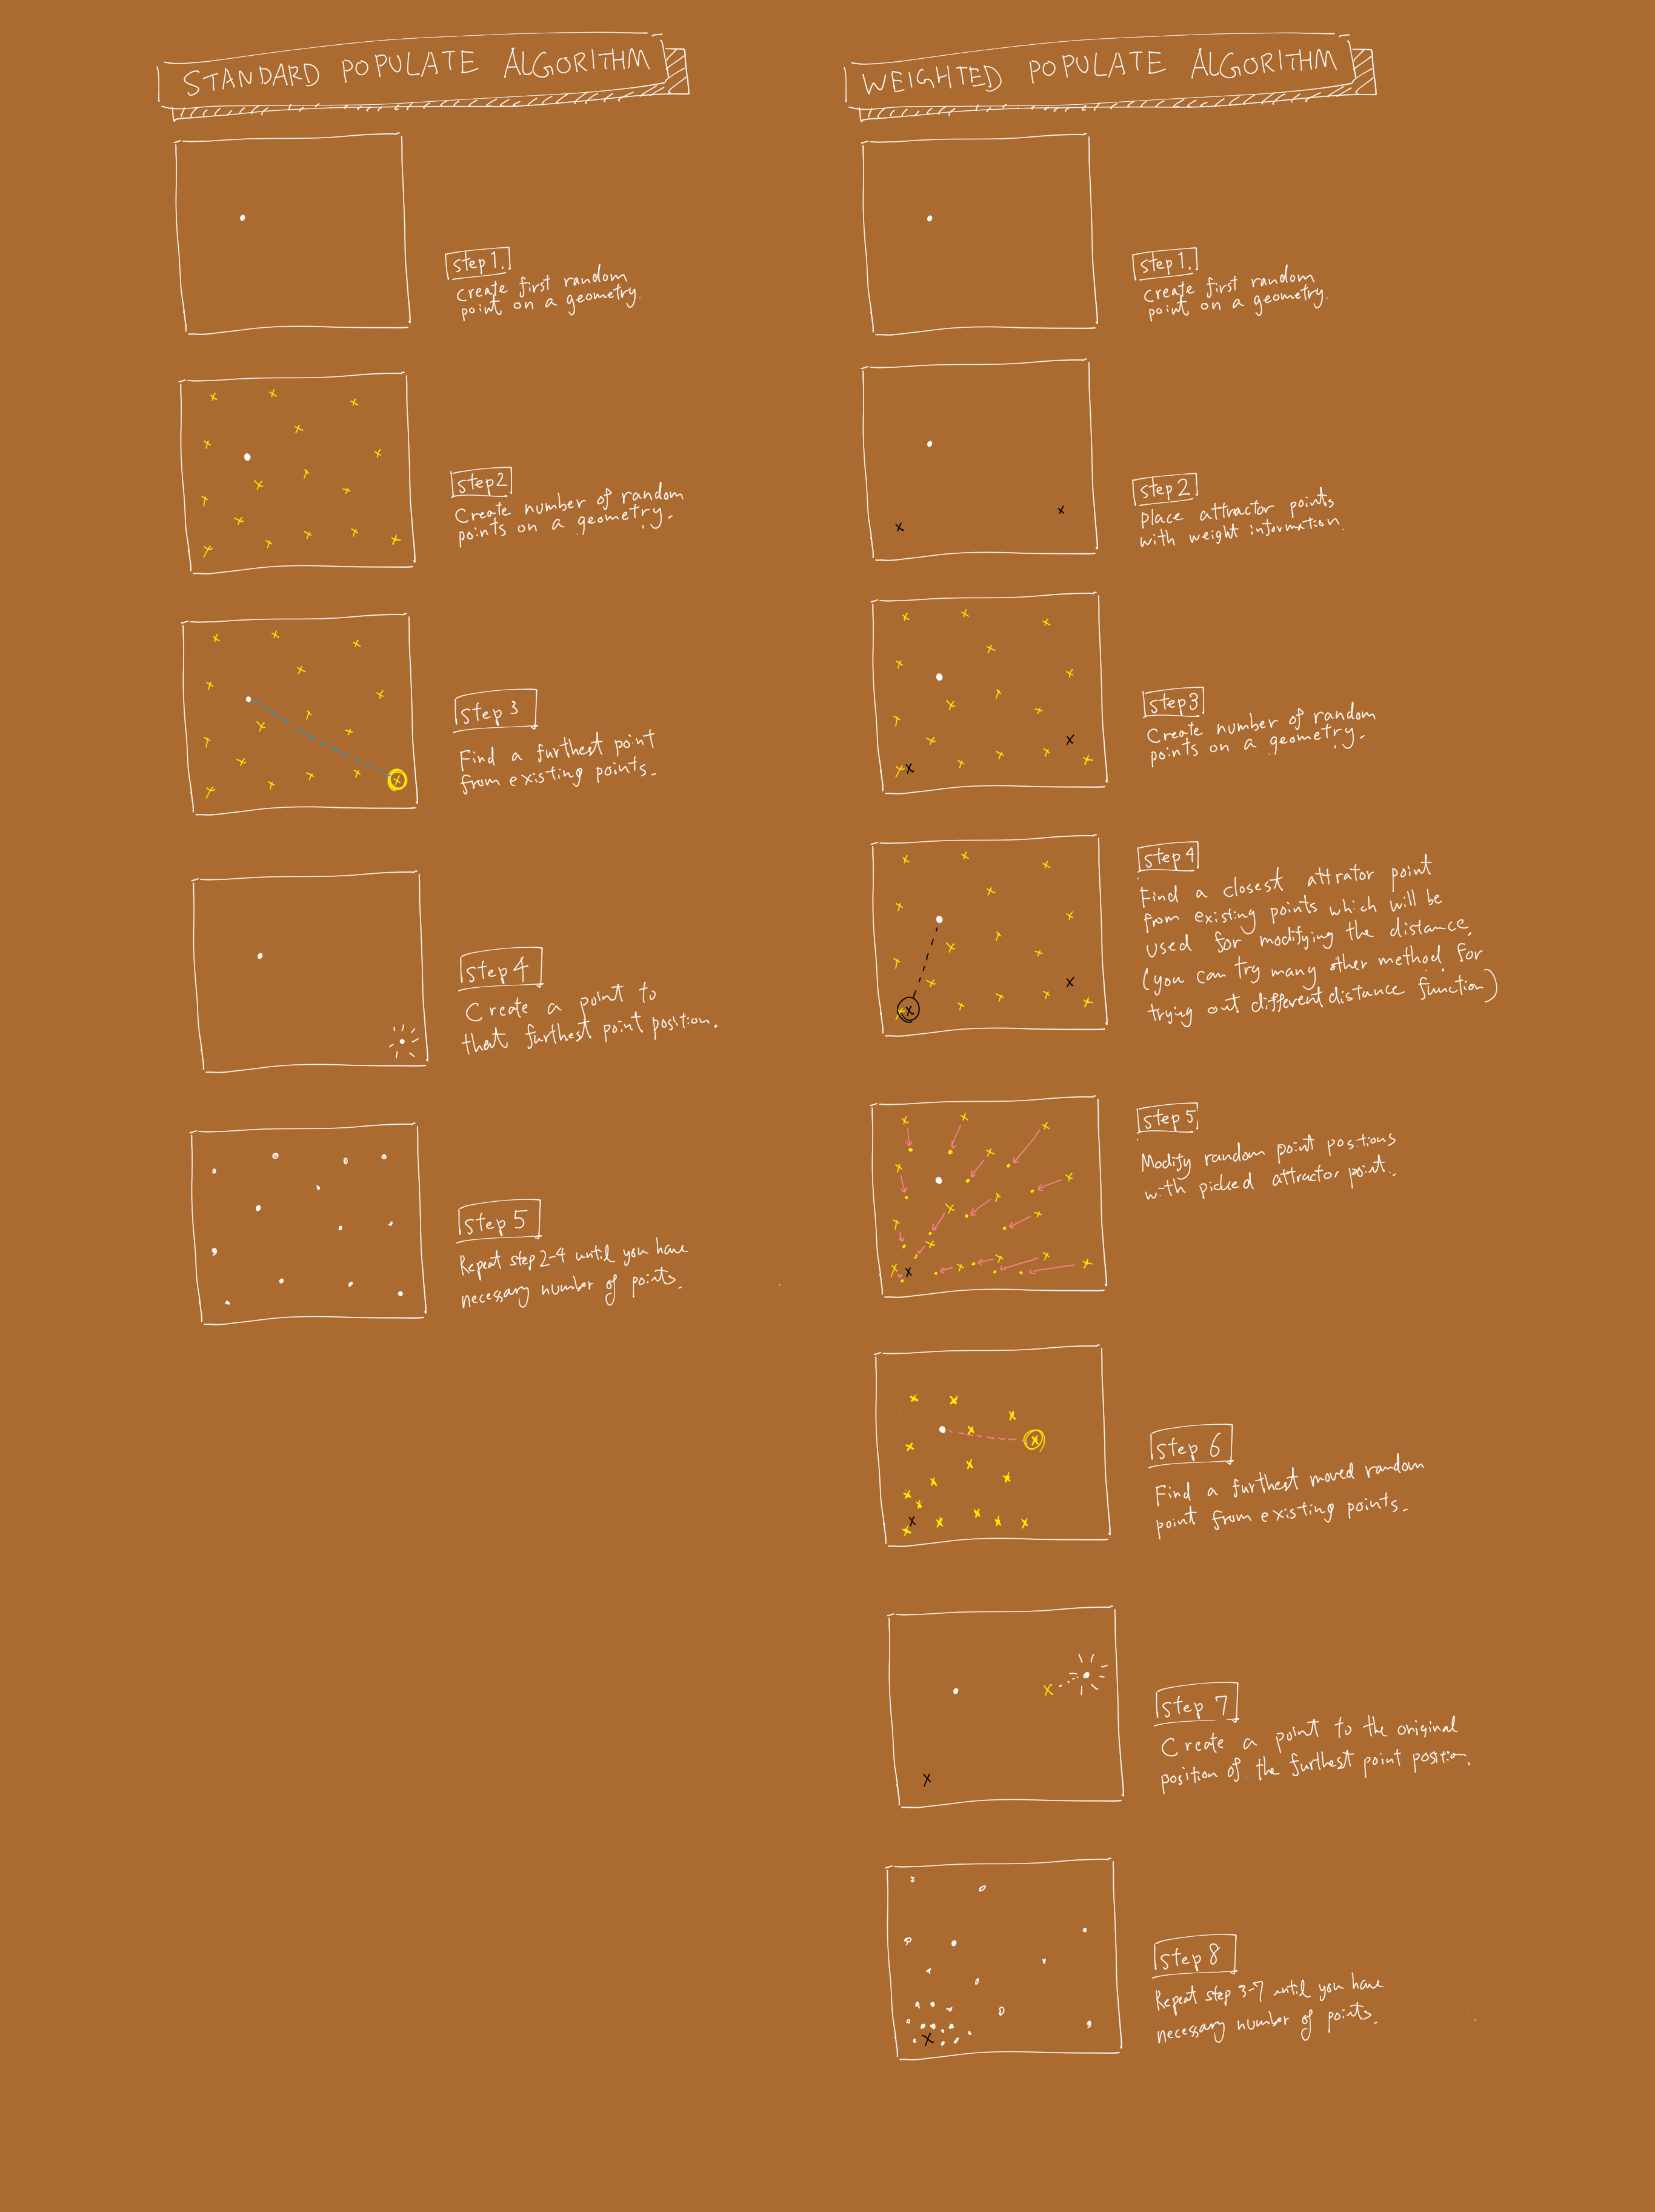 STANDARD POPULATE ALGORITHM
step 1.
Create first random
point on a geometry.
step2
Create number of random
points on a geometry.
step 3
Find a furthest point
from existing points.
step 4
Create a point to
that furthest point position.
step 5
Repeat step 2-4 until you have
necessary number of points.
WEIGHTED POPULATE ALGORITHM
step 1.
Create first random
point on a geometry.
step 2
Place attractor points
with weight information.
step3
Create number of random
points on a geometry.
step4
Find a closest attrator point
from existing points which will be
used for modifying the distance.
(you can try many other method for
trying out different distance function)
step 5
Modify random point positions
with picked attractor point.
step 6
Find a furthest moved random
point from existing points.
step 7
Create a point to the original
position of the furthest point position.
step 8
Repeat step 3-7 until you have
necessary number of points.